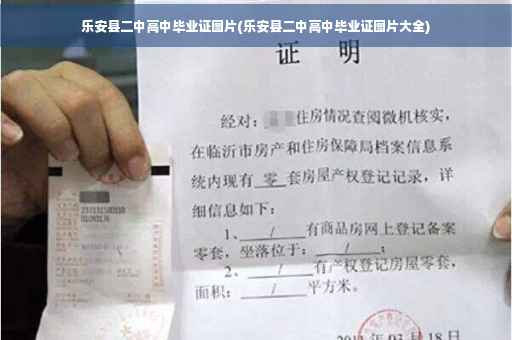 乐安县二中高中毕业证图片(乐安县二中高中毕业证图片大全)
证 明
经对：住房情况查阅微机核实，
在临沂市房产和住房保障局档案信息系
统内现有 零 套房屋产权登记记录，详
细信息如下：
1、 / 有商品房网上登记备案
零套，坐落位于： / ；
2、 / 有产权登记房屋零套，
面积： / 平方米。